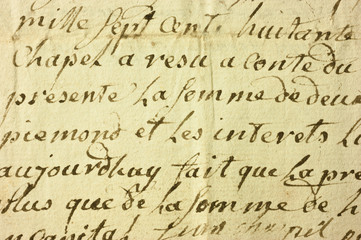 mille Sept Cent huitante
Chapel a resu a conte du
presente La Somme de deux
piemond et Les interets L
aujourdhuy fait que La pre
plus que de La Somme de h
capital